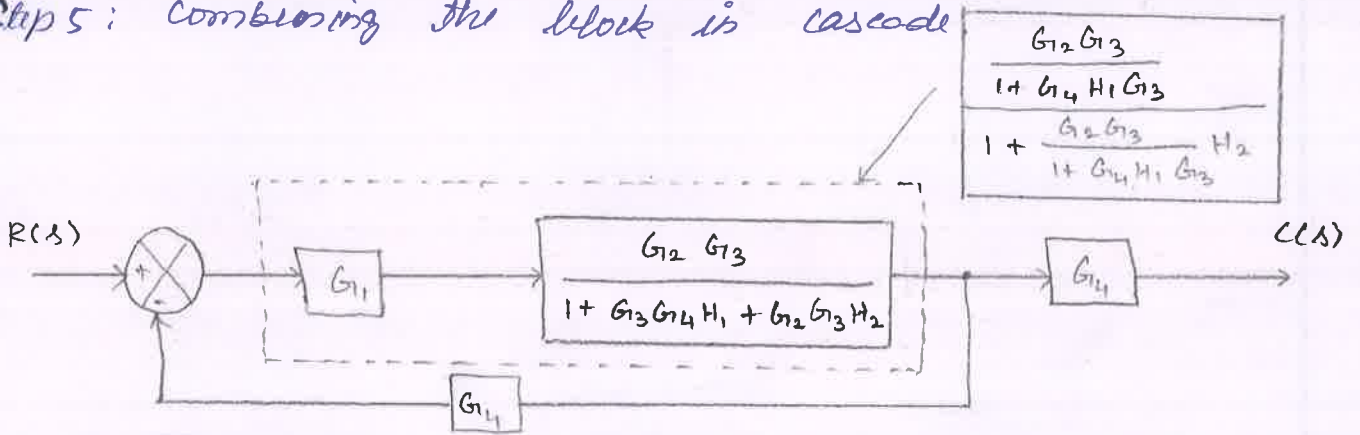 Step 5: Combining the block in cascade
G2 G3
1+ G4 H1 G3
1 + G2 G3 H2
1+ G4 H1 G3
R(s)
C(s)
+
-
G1
G2 G3
1+ G3G4H1 + G2G3H2
G4
G4